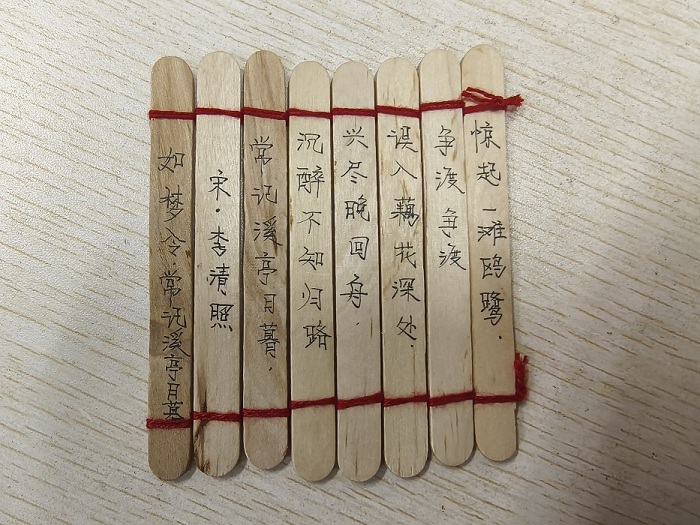 如梦令·常记溪亭日暮
宋·李清照
常记溪亭日暮.
沉醉不知归路
兴尽晚回舟.
误入藕花深处.
争渡 争渡
惊起一滩鸥鹭.